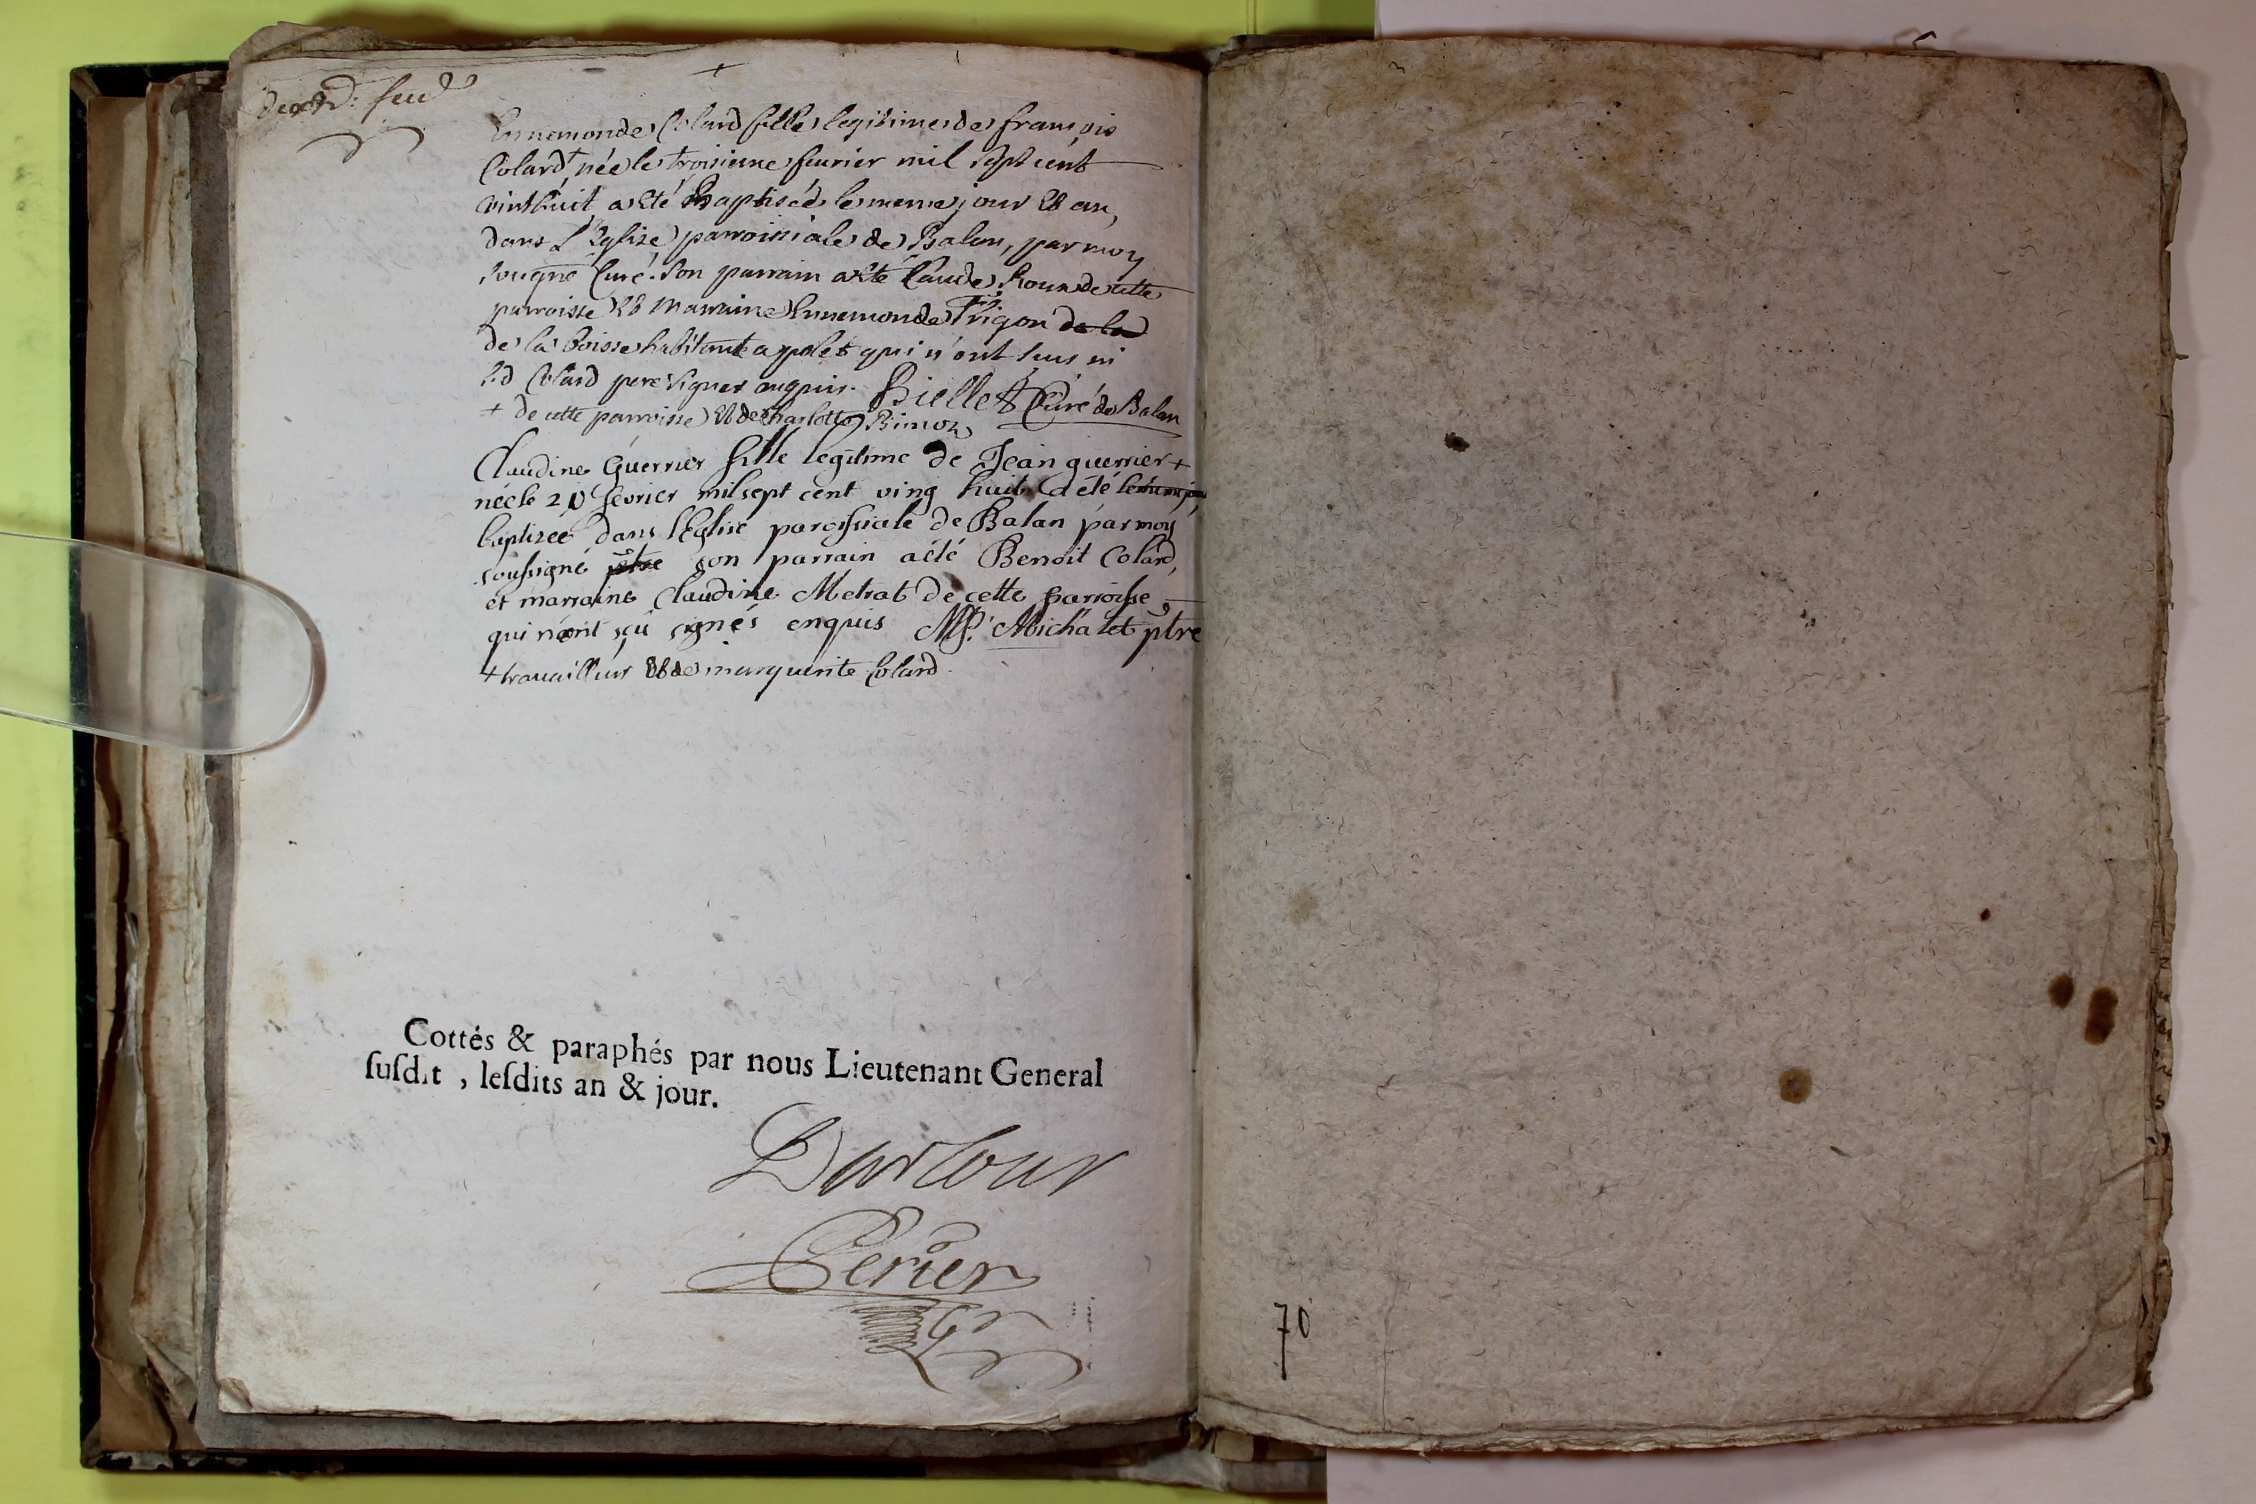 Ennemonde Colard fille legitime de françois
Colard + née le troisieme feurier mil sept cent
vint huit a été Baptisée le meme jour & an,
dans L'Eglise parroissiale de Balan, par moy
sousigné Curé. Son parrain a été Claude Roux de cette
parroisse & Marraine Ennemonde Trigon de la
de la boisse habitante a polet qui n'ont sceu ni
led Colard pere signer enquis. Billet Curé de Balan
+ de cette parroisse & de Charlotte Rimoz
Claudine Guerrier fille legitime de Jean guerrier +
née le 20 fevrier mil sept cent ving huit a été le meme jour
baptizeé dans l'Eglise paroissiale de Balan par moy
soussigné ptre son parrain a été Benoit Colard,
et marraine Claudine Metrat de cette parroisse
qui n'ont sçu signés enquis Mp. Michalet ptre
+ travailleur & de marguerite Colard
Cottés & paraphés par nous Lieutenant General
suſdit, leſdits an & jour.
Perier
70